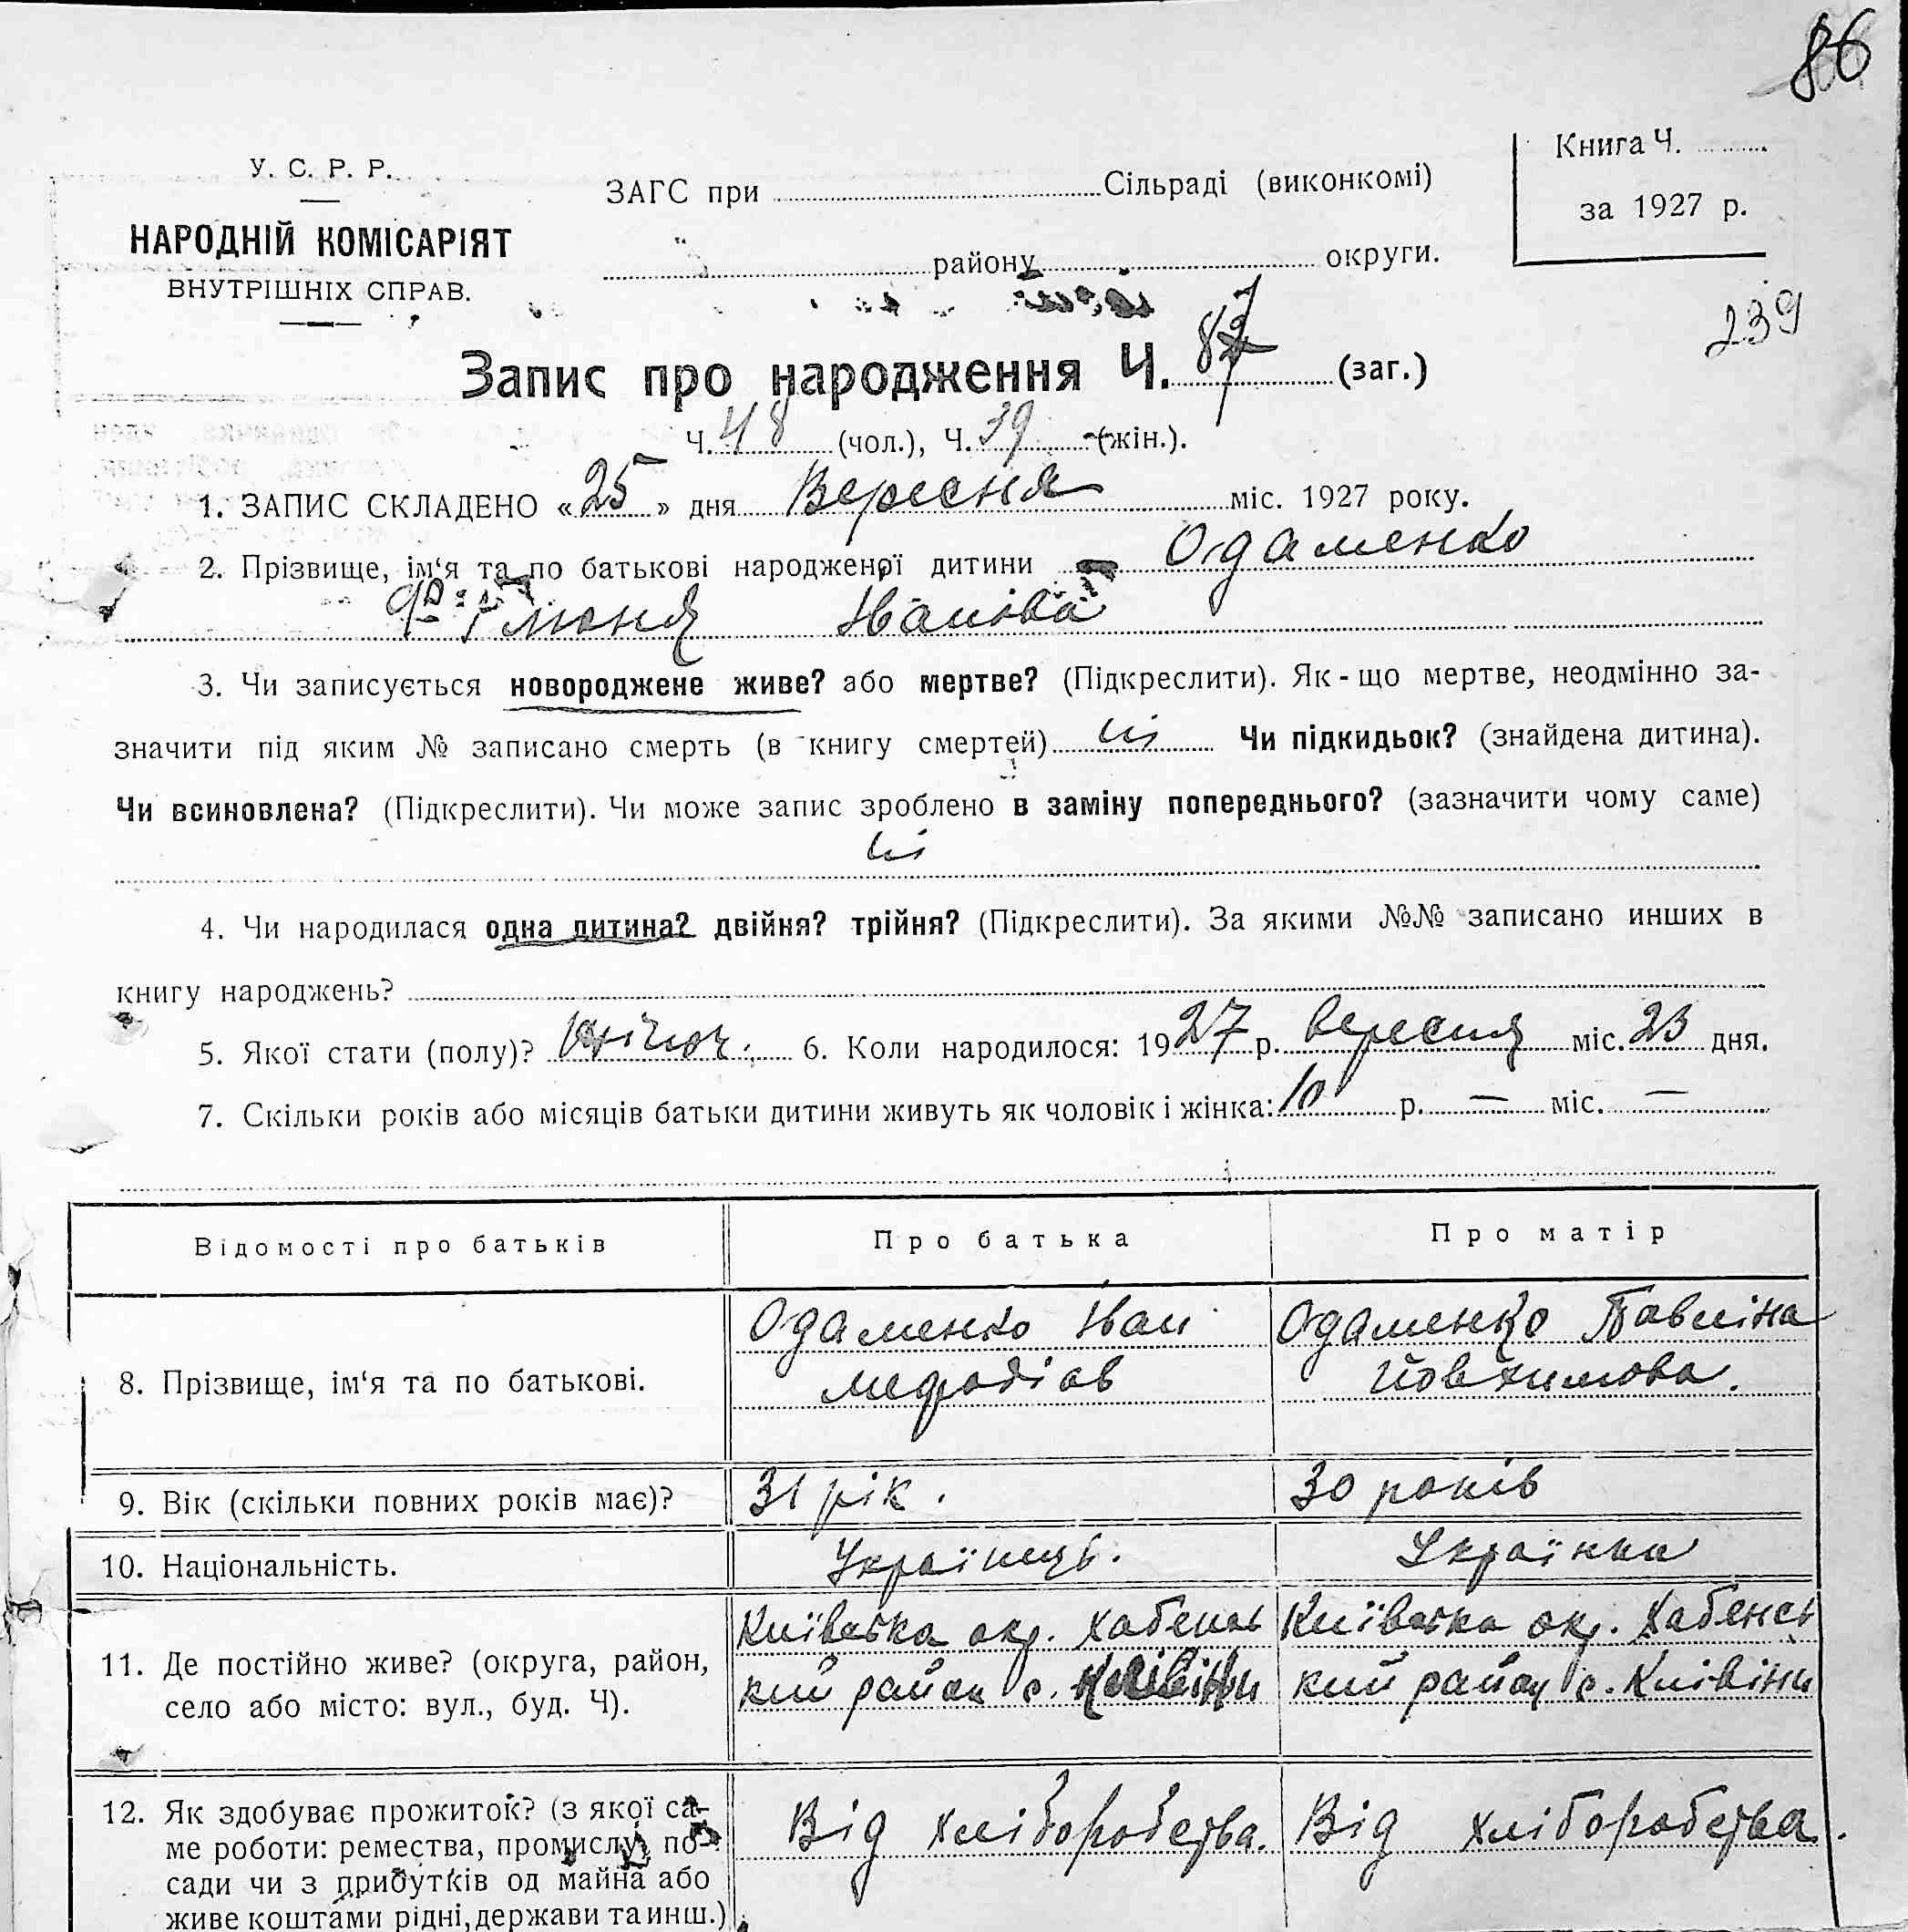 86
У. С. Р. Р.
НАРОДНІЙ КОМІСАРІЯТ
ВНУТРІШНІХ СПРАВ.
ЗАГС при Сільраді (виконкомі)
району округи.
Книга Ч.
за 1927 р.
239
Запис про народження Ч. 87 (заг.)
Ч. 48 (чол.), Ч. 39 (жін.).
1. ЗАПИС СКЛАДЕНО «25» дня Вересня міс. 1927 року.
2. Прізвище, ім‘я та по батькові народженої дитини Одаменко
Іванова
3. Чи записується новороджене живе? або мертве? (Підкреслити). Як-що мертве, неодмінно за-
значити під яким № записано смерть (в книгу смертей) ні Чи підкидьок? (знайдена дитина).
Чи всиновлена? (Підкреслити). Чи може запис зроблено в заміну попереднього? (зазначити чому саме)
ні
4. Чи народилася одна дитина? двійня? трійня? (Підкреслити). За якими №№ записано инших в
книгу народжень?
5. Якої стати (полу)? жіноч. 6. Коли народилося: 1927 р. вересня міс. 23 дня.
7. Скільки років або місяців батьки дитини живуть як чоловік і жінка: 10 р. — міс. —
Відомості про батьків Про батька Про матір
8. Прізвище, ім‘я та по батькові.
Одаменко Іван
Мефодіов
Одаменко Павліна
Йовхимова.
9. Вік (скільки повних років має)? 31 рік. 30 років
10. Національність. Українець. Українка
11. Де постійно живе? (округа, район,
село або місто: вул., буд. Ч).
Київська окр. Хабенсь
кий район с. Кливіни
Київська окр. Хабенсь
кий район с. Кливіни
12. Як здобуває прожиток? (з якої са-
ме роботи: ремества, промислу, по-
сади чи з прибутків од майна або
живе коштами рідні, держави та инш.)
Від хліборобства.
Від хліборобства.